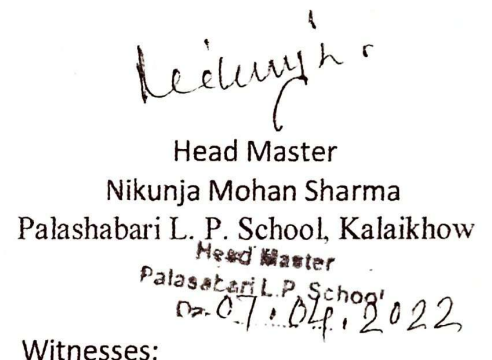 Head Master
Nikunja Mohan Sharma
Palashabari L. P. School, Kalaikhow
Head Master
Palasabari L.P. School
07.04.2022
Witnesses: